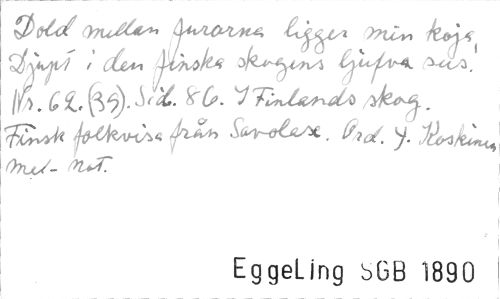 Dold mellan furorna ligger min koja,
Djupt i den finska skogens ljufva sus.
Nr. 62. (39). Sid. 86. I Finlands skog.
Finsk folkvisa från Savolax. Ord. Y. Koskinen
mel- not.
EggeLing SGB 1890